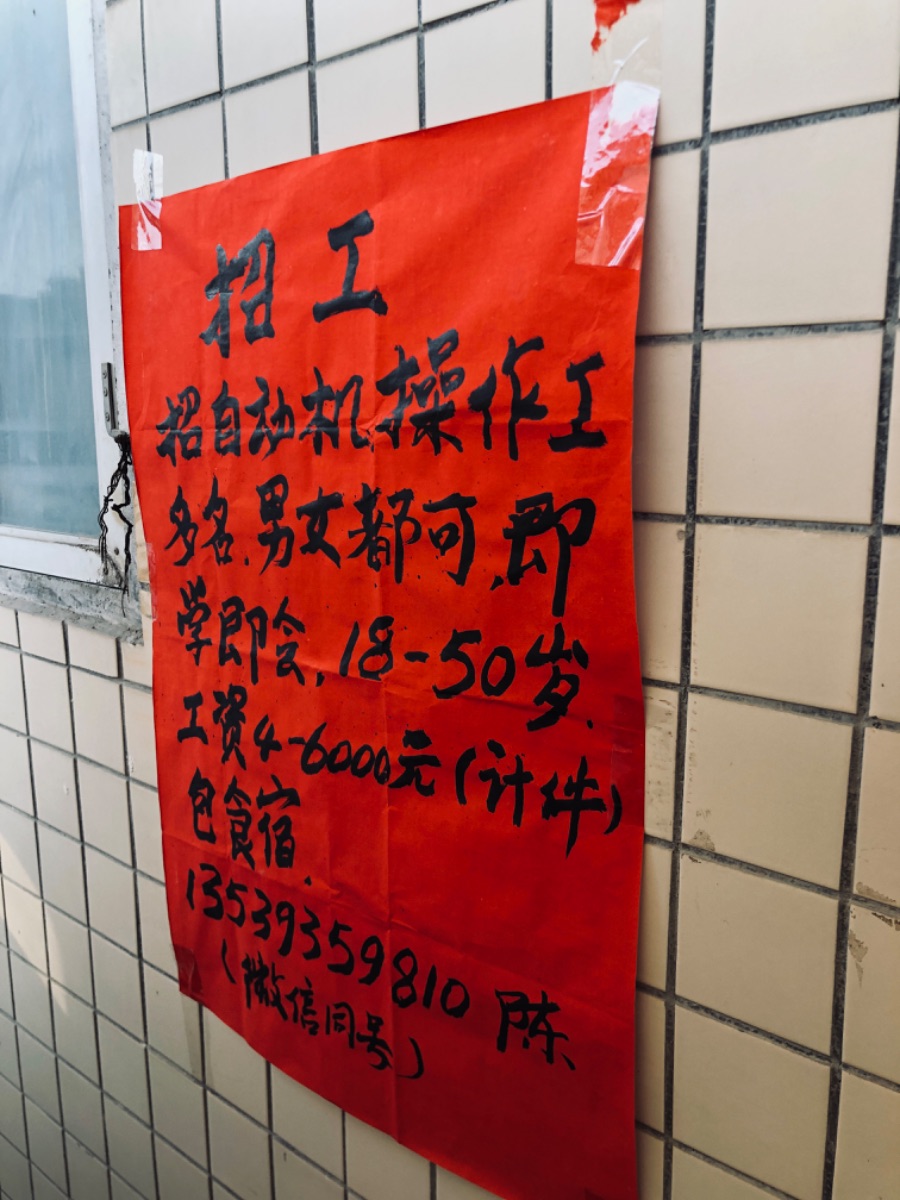 招工
招自动机操作工
多名.男女都可.即
学即会.18-50岁.
工资4-6000元(计件)
包食宿.
13539359810 陈
(微信同号)